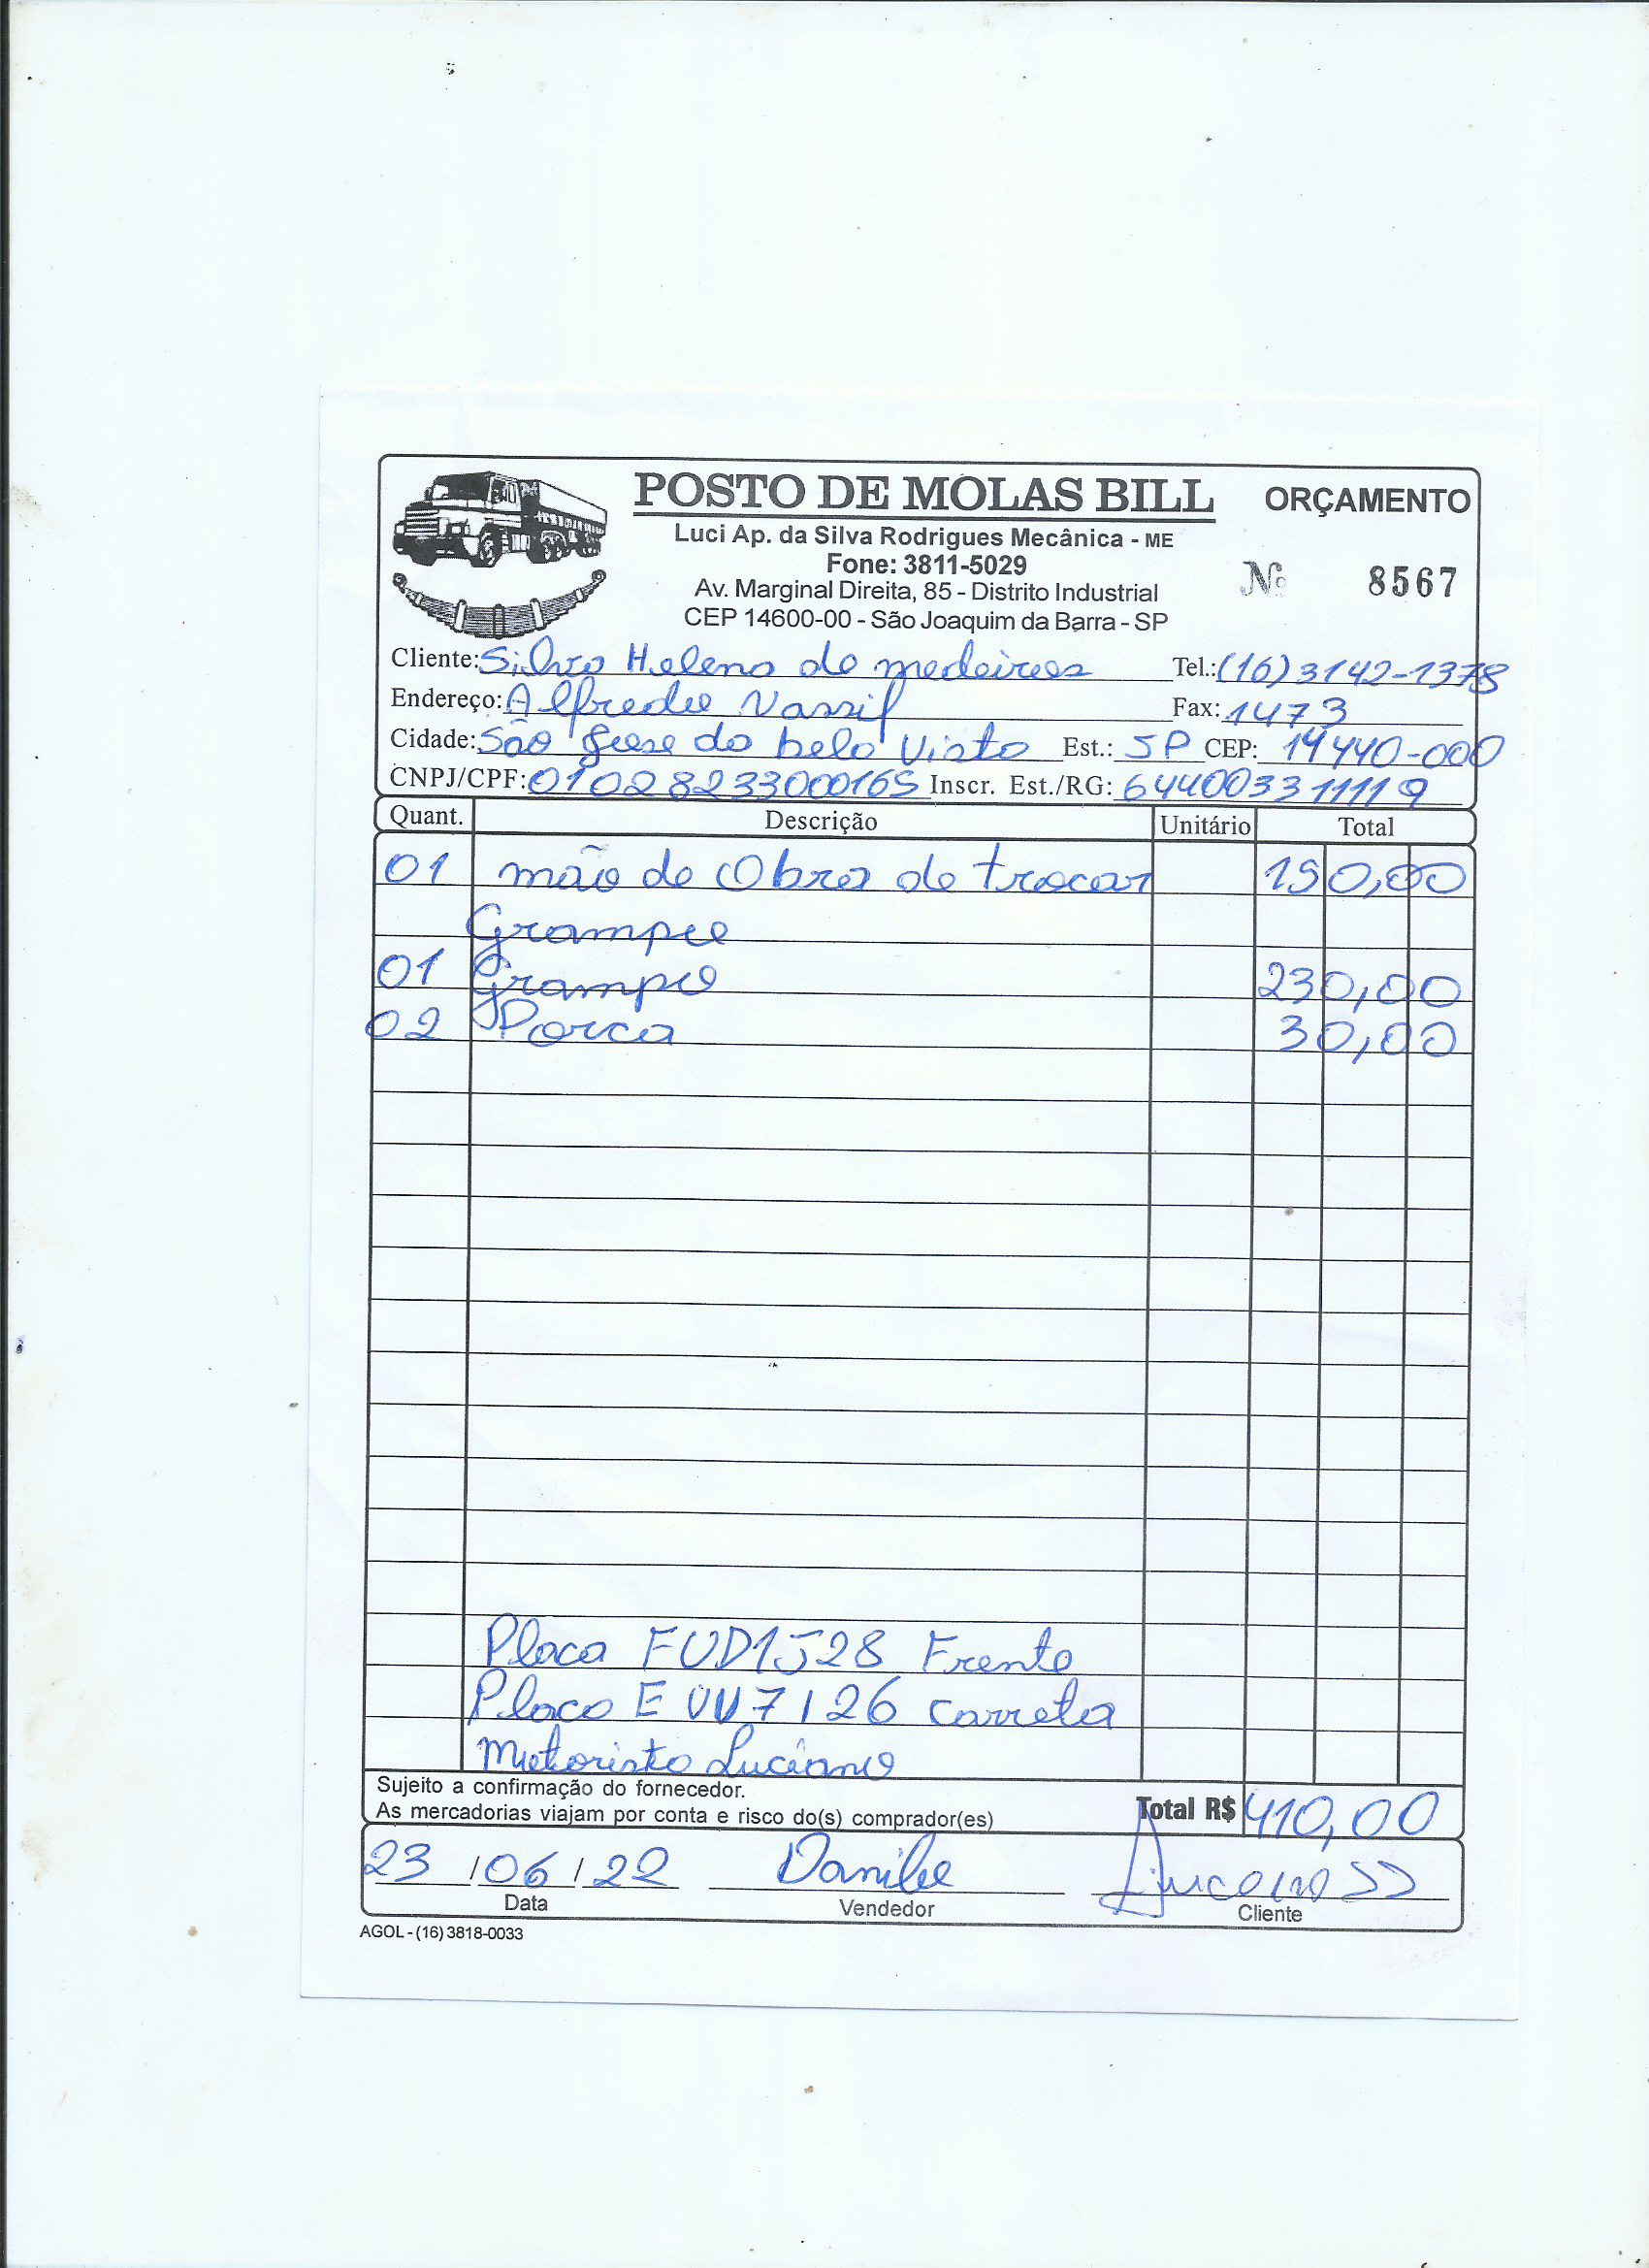 POSTO DE MOLAS BILL ORÇAMENTO
Luci Ap. da Silva Rodrigues Mecânica - ME
Fone: 3811-5029
Av. Marginal Direita, 85 - Distrito Industrial
Nº 8567
CEP 14600-00 - São Joaquim da Barra - SP
Cliente: Silvio Heleno de medeiros Tel.: (16) 3142-1378
Endereço: Alfredo Vassif Fax: 1473
Cidade: São Jose do belo Visto Est.: SP CEP: 14440-000
CNPJ/CPF: 01028233000165 Inscr. Est./RG: 644003311119
Quant. Descrição Unitário Total
01 mão de Obra de trocar 150,00
Grampo
01 Grampo 230,00
02 Porca 30,00
Placa FUD1J28 Frente
Placa EVU7126 carreta
Motoristo Luciano
Sujeito a confirmação do fornecedor.
As mercadorias viajam por conta e risco do(s) comprador(es) Total R$ 410,00
23 / 06 / 22 Danilo
Data Vendedor Cliente
AGOL - (16) 3818-0033